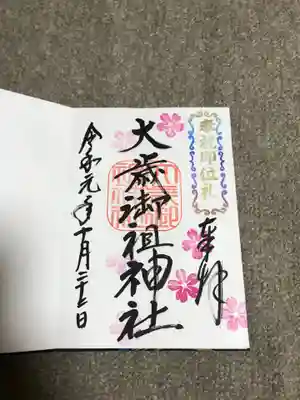 奉祝即位礼
奉拝
大歳御祖神社
令和元年十月二十二日